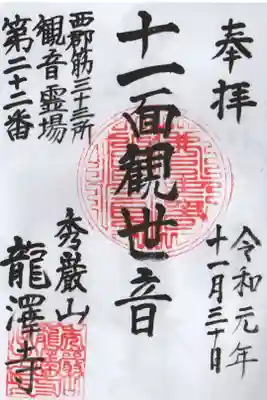 奉拝
令和元年
十一月三十日
十一面観世音
秀巌山
龍澤寺
西郡筋三十三所
観音霊場
第二十二番